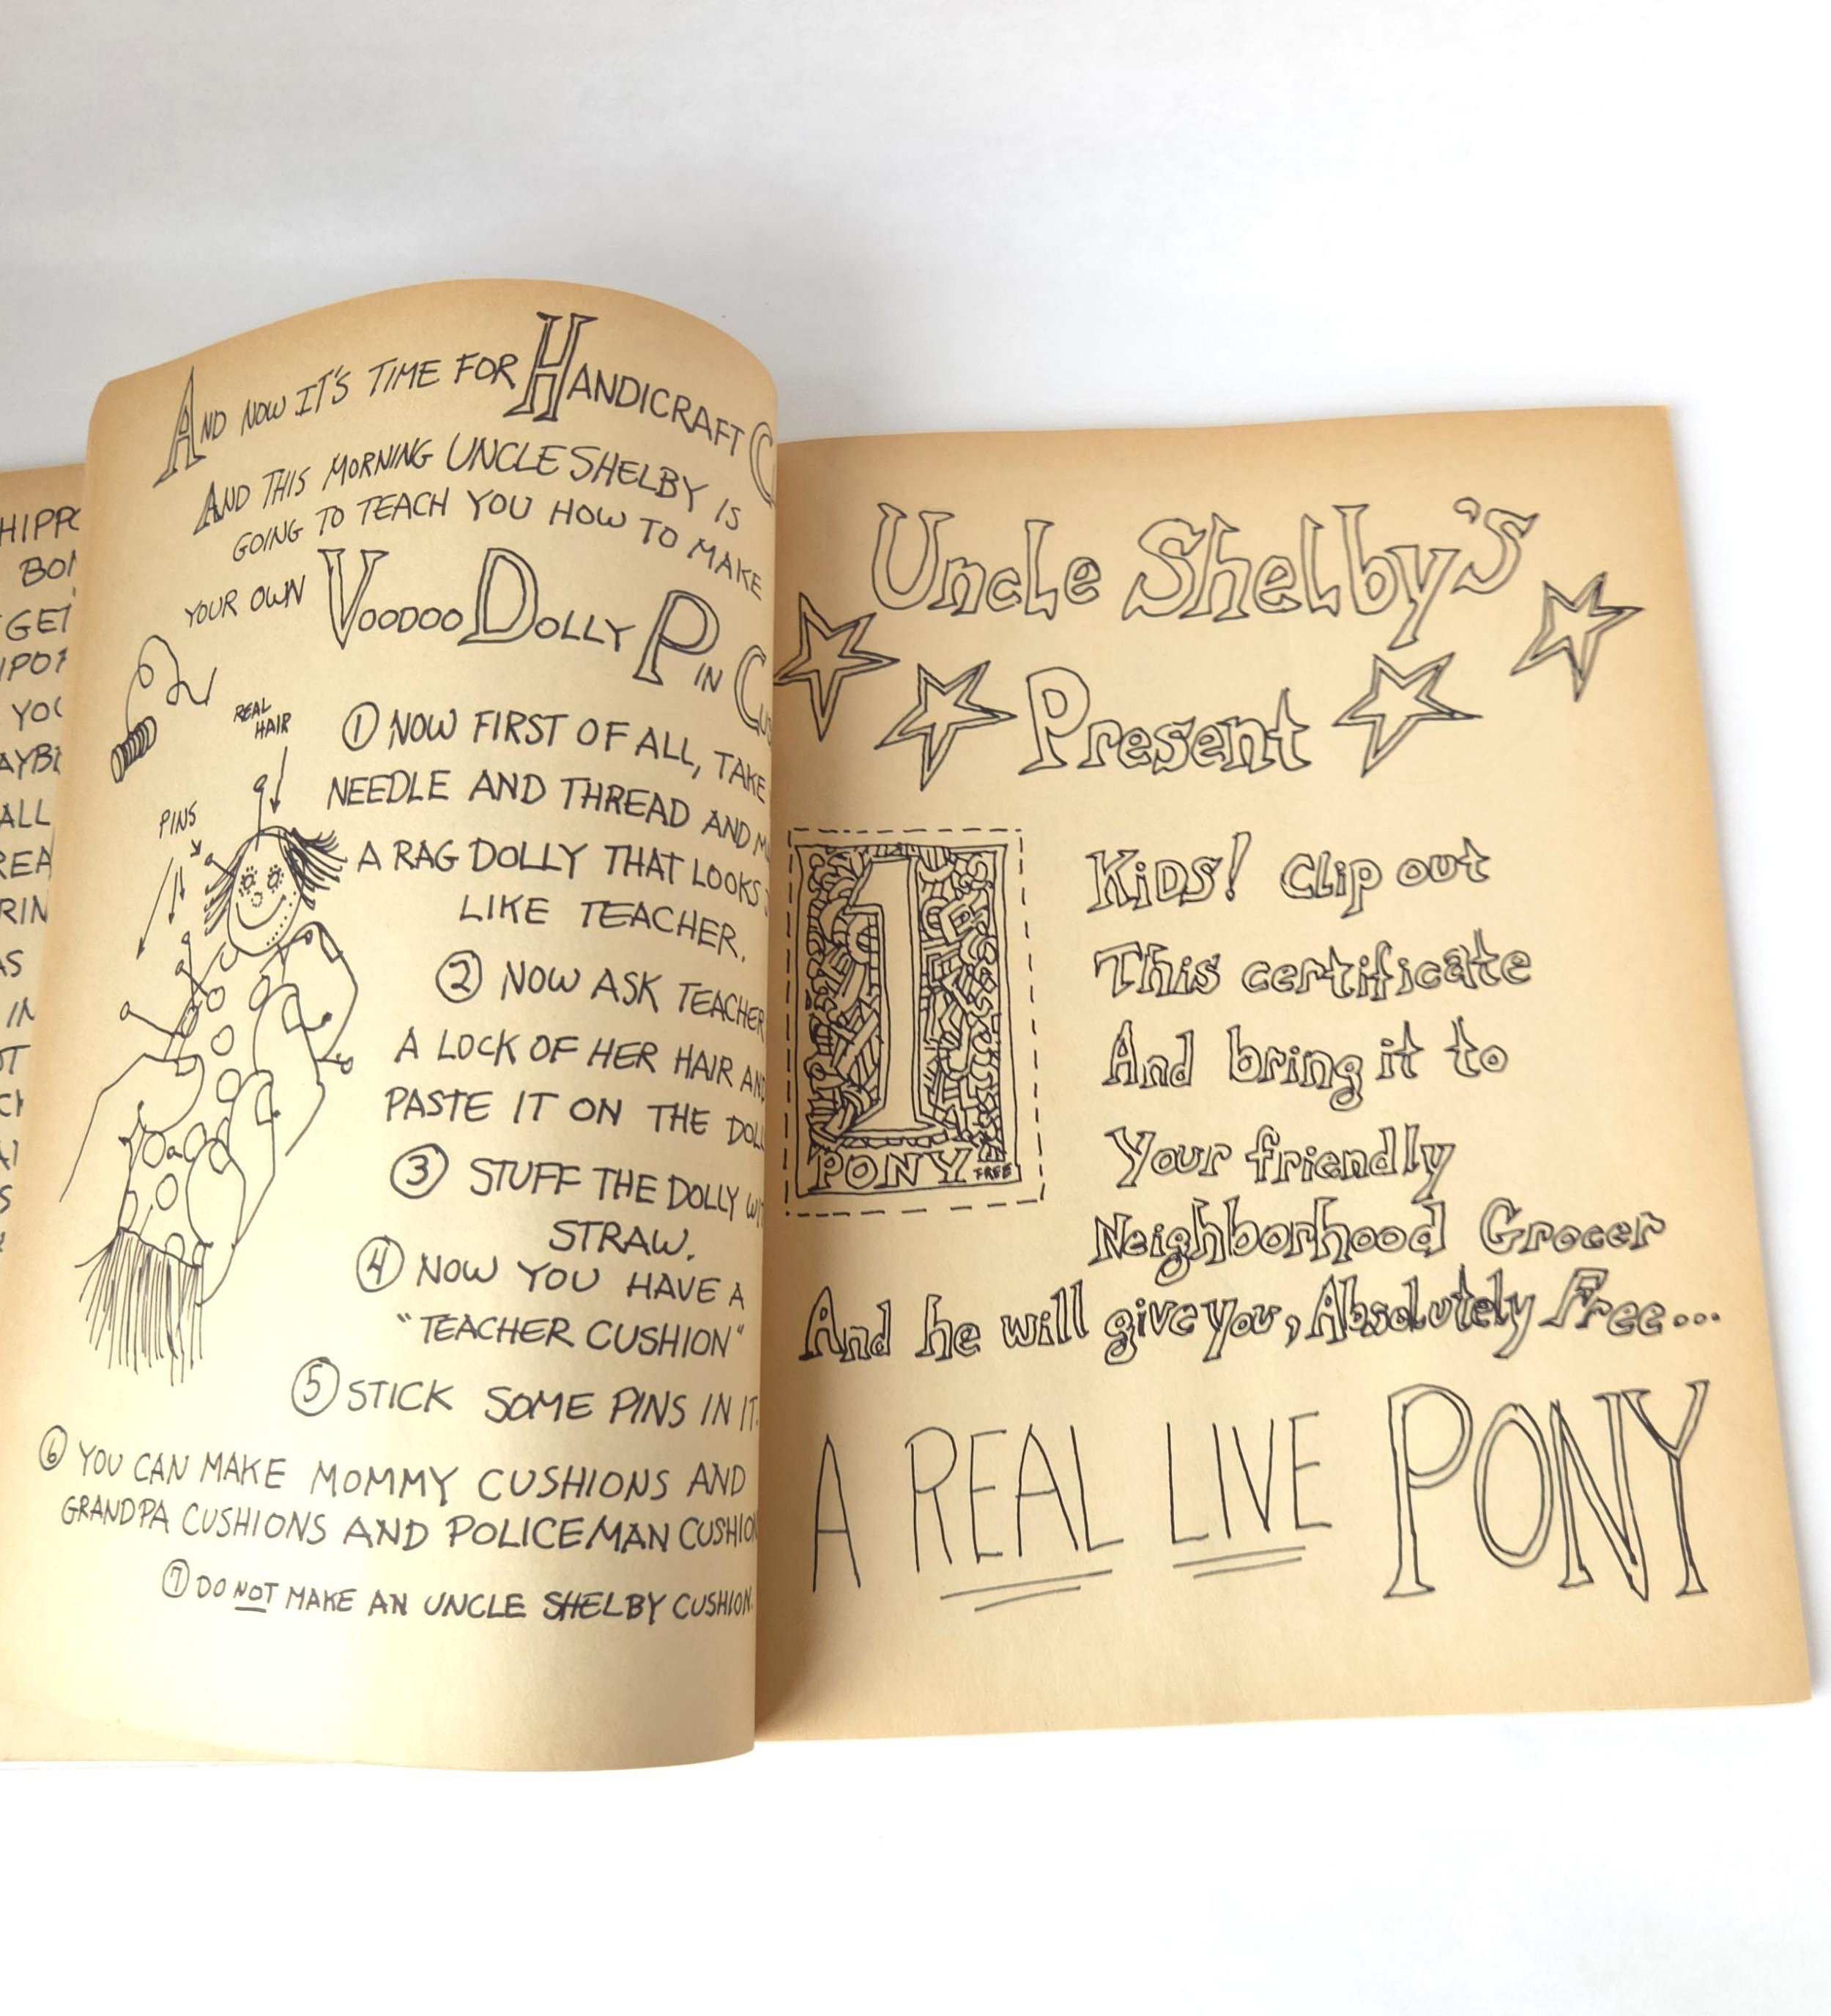 HIPPO
GET
YOU
ALL
AS
AND NOW IT'S TIME FOR HANDICRAFT
AND THIS MORNING UNCLE SHELBY IS
GOING TO TEACH YOU HOW TO MAKE
YOUR OWN VOODOO DOLLY PIN
REAL
HAIR
PINS
① NOW FIRST OF ALL, TAKE
NEEDLE AND THREAD AND
A RAG DOLLY THAT LOOKS
LIKE TEACHER.
② NOW ASK TEACHER
A LOCK OF HER HAIR AND
PASTE IT ON THE
③ STUFF THE DOLLY
STRAW.
④ NOW YOU HAVE A
"TEACHER CUSHION"
⑤ STICK SOME PINS IN IT.
⑥ YOU CAN MAKE MOMMY CUSHIONS AND
GRANDPA CUSHIONS AND POLICEMAN
⑦ DO NOT MAKE AN UNCLE SHELBY CUSHION.
Uncle Shelby's
Present
1
PONY FREE
Kids! Clip out
This certificate
And bring it to
Your friendly
Neighborhood Grocer
And he will give you, Absolutely Free...
A REAL LIVE PONY